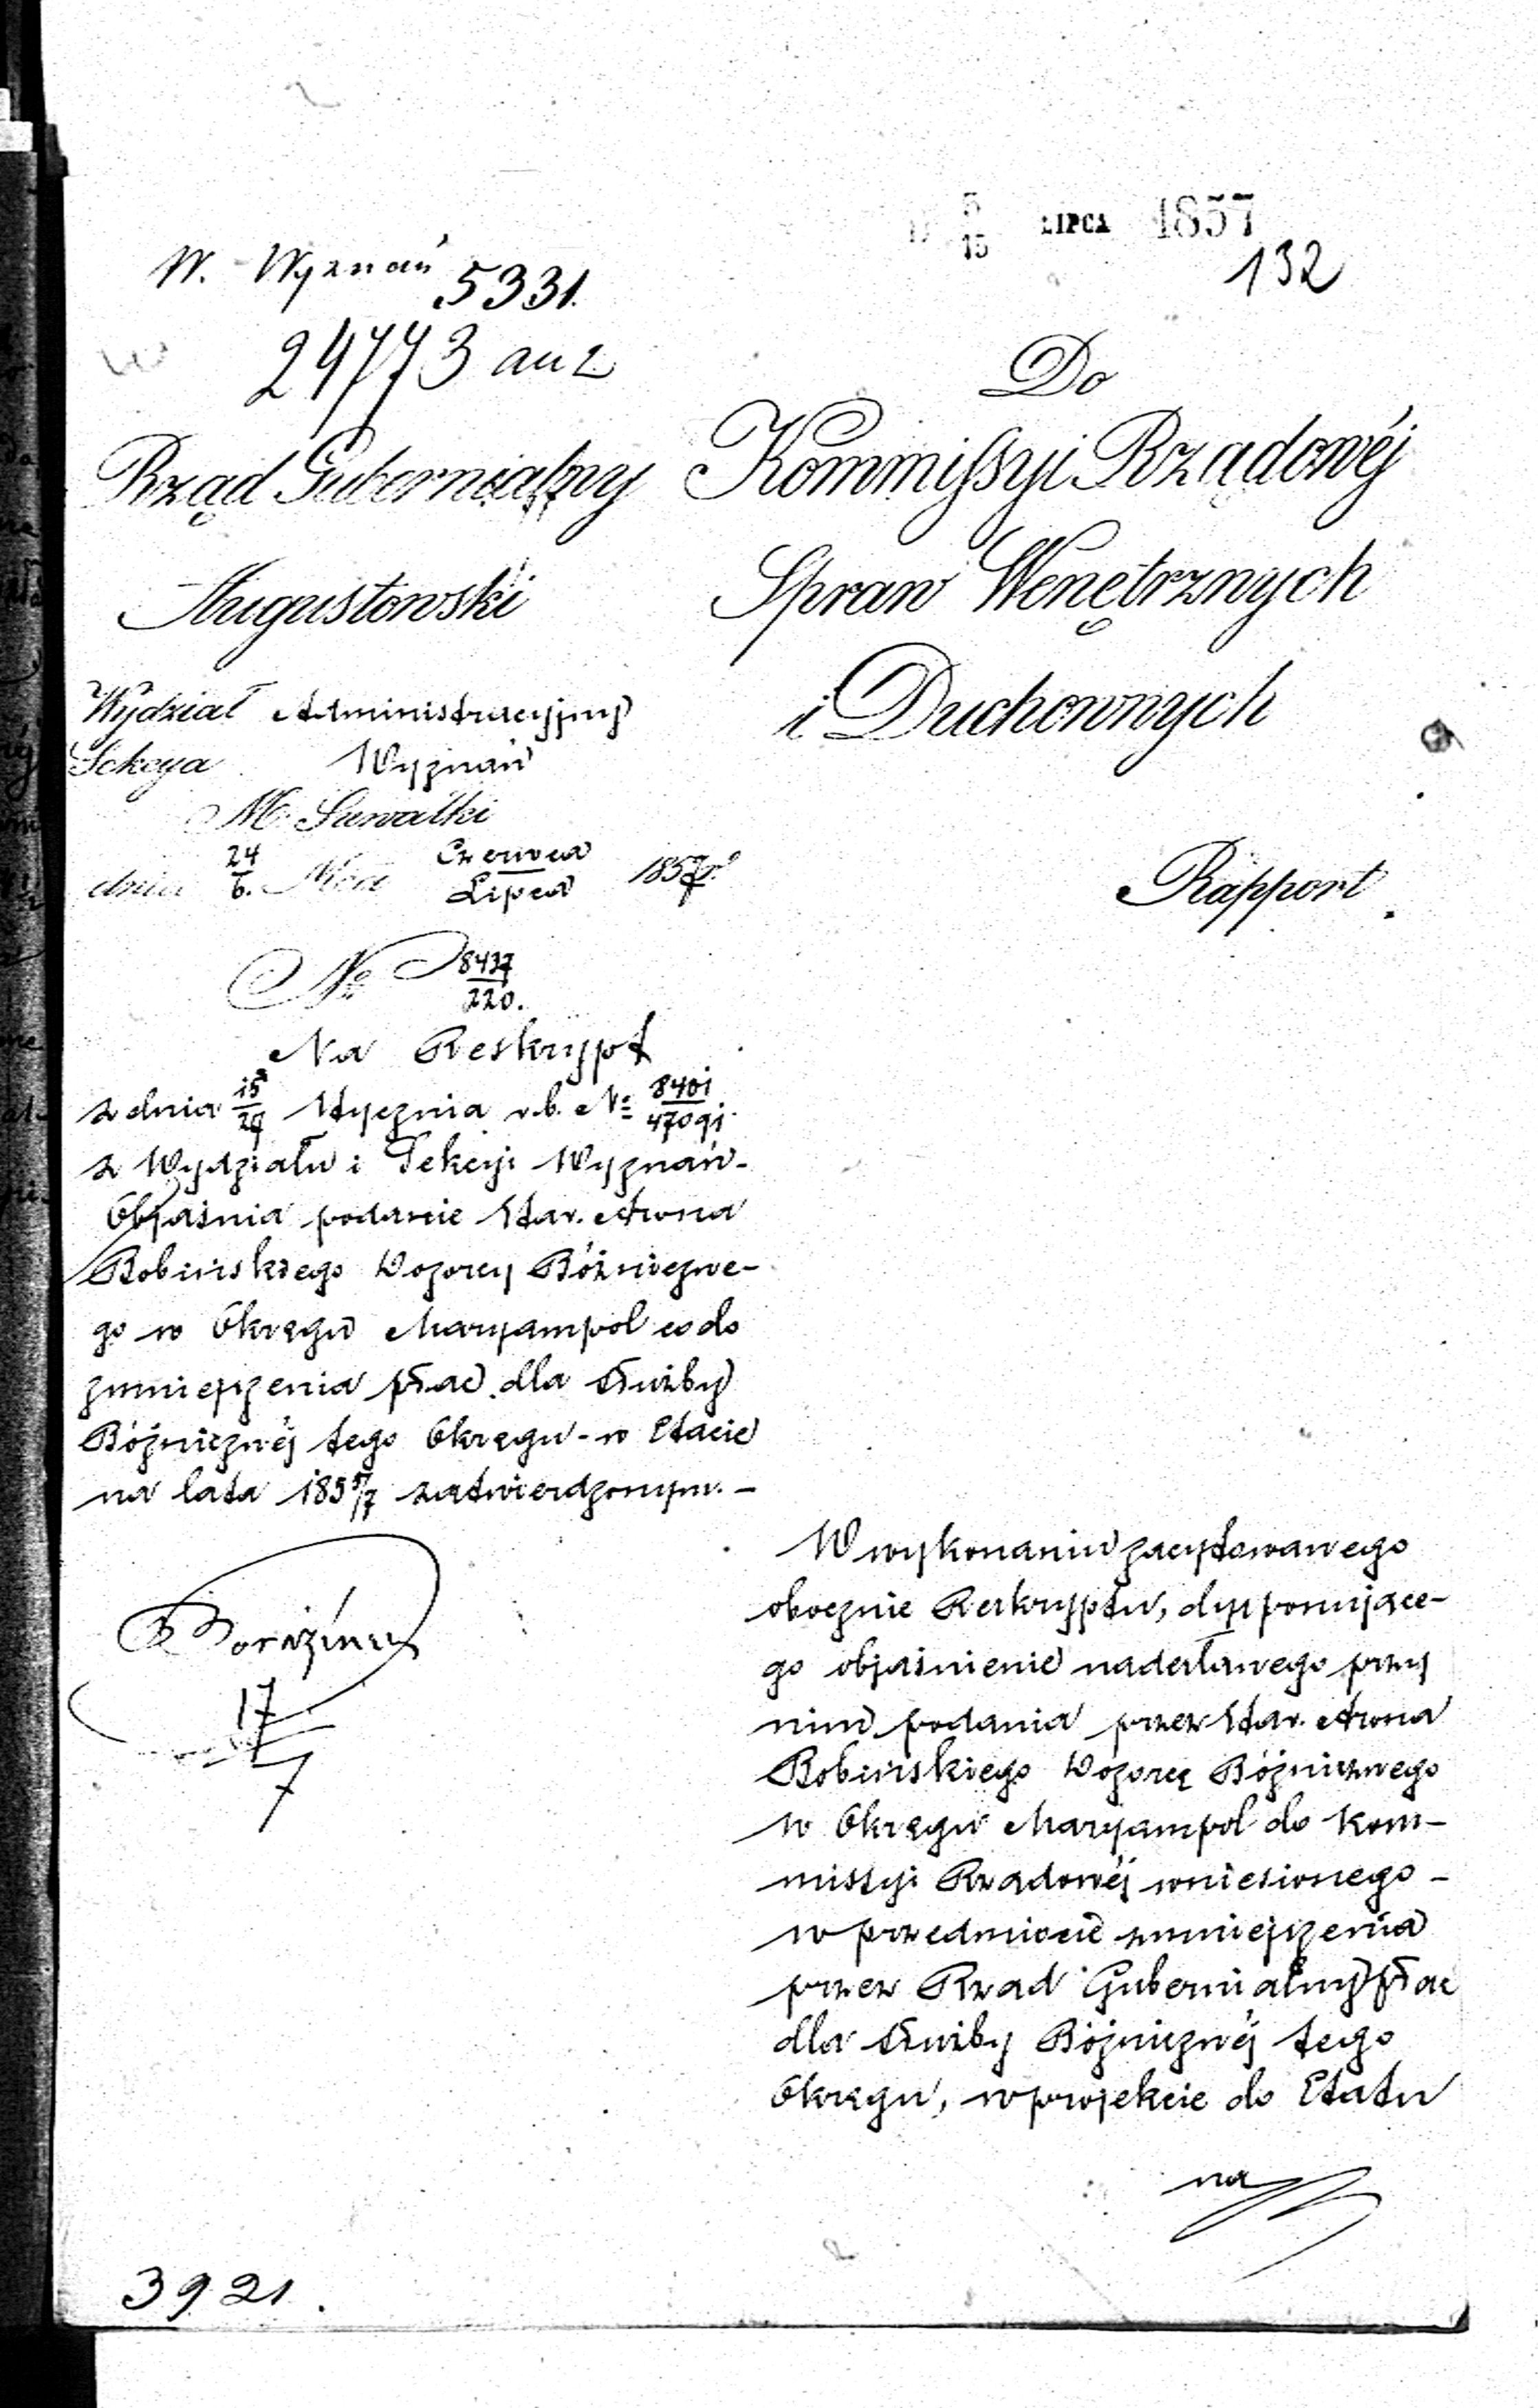 5
15
LIPCA 1857
132
W. Wyznań
5331.
24773
Rząd Gubernialny
Augustowski
Wydział Administracyjny
Sekcya Wyznań
M. Suwałki
dnia 24/6. Mca Czerwca/Lipca 1857 r.
No 8437/220.
Na Reskrypt
z dnia 15/27 Stycznia r.b. No
z Wydziału i Sekcyi Wyznań-
Objaśnia podanie Star. Arona
Bobińskiego Dozorcy Bóżniczne-
go w Okręgu Maryampol co do
zmniejszenia płac dla służby
Bóżnicznéj tego Okręgu - w Etacie
na lata 1855/7 zatwierdzonym. -
17
7
Do
Kommissyi Rządowéj
Spraw Wenętrznych
i Duchownych
Rapport.
W wykonaniu zacytowanego
obocznie Reskryptu, dysponujące-
go objaśnienie nadesłanego przy
nim podania przez Star. Arona
Bobińskiego Dozorcę Bóżnicznego
w Okręgu Maryampol do Kom-
missyi Rządowéj wniesionego -
w przedmiocie zmniejszenia
przez Rząd Gubernialny płac
dla służby Bóżnicznéj tego
Okręgu, w projekcie do Etatu
na
3921.